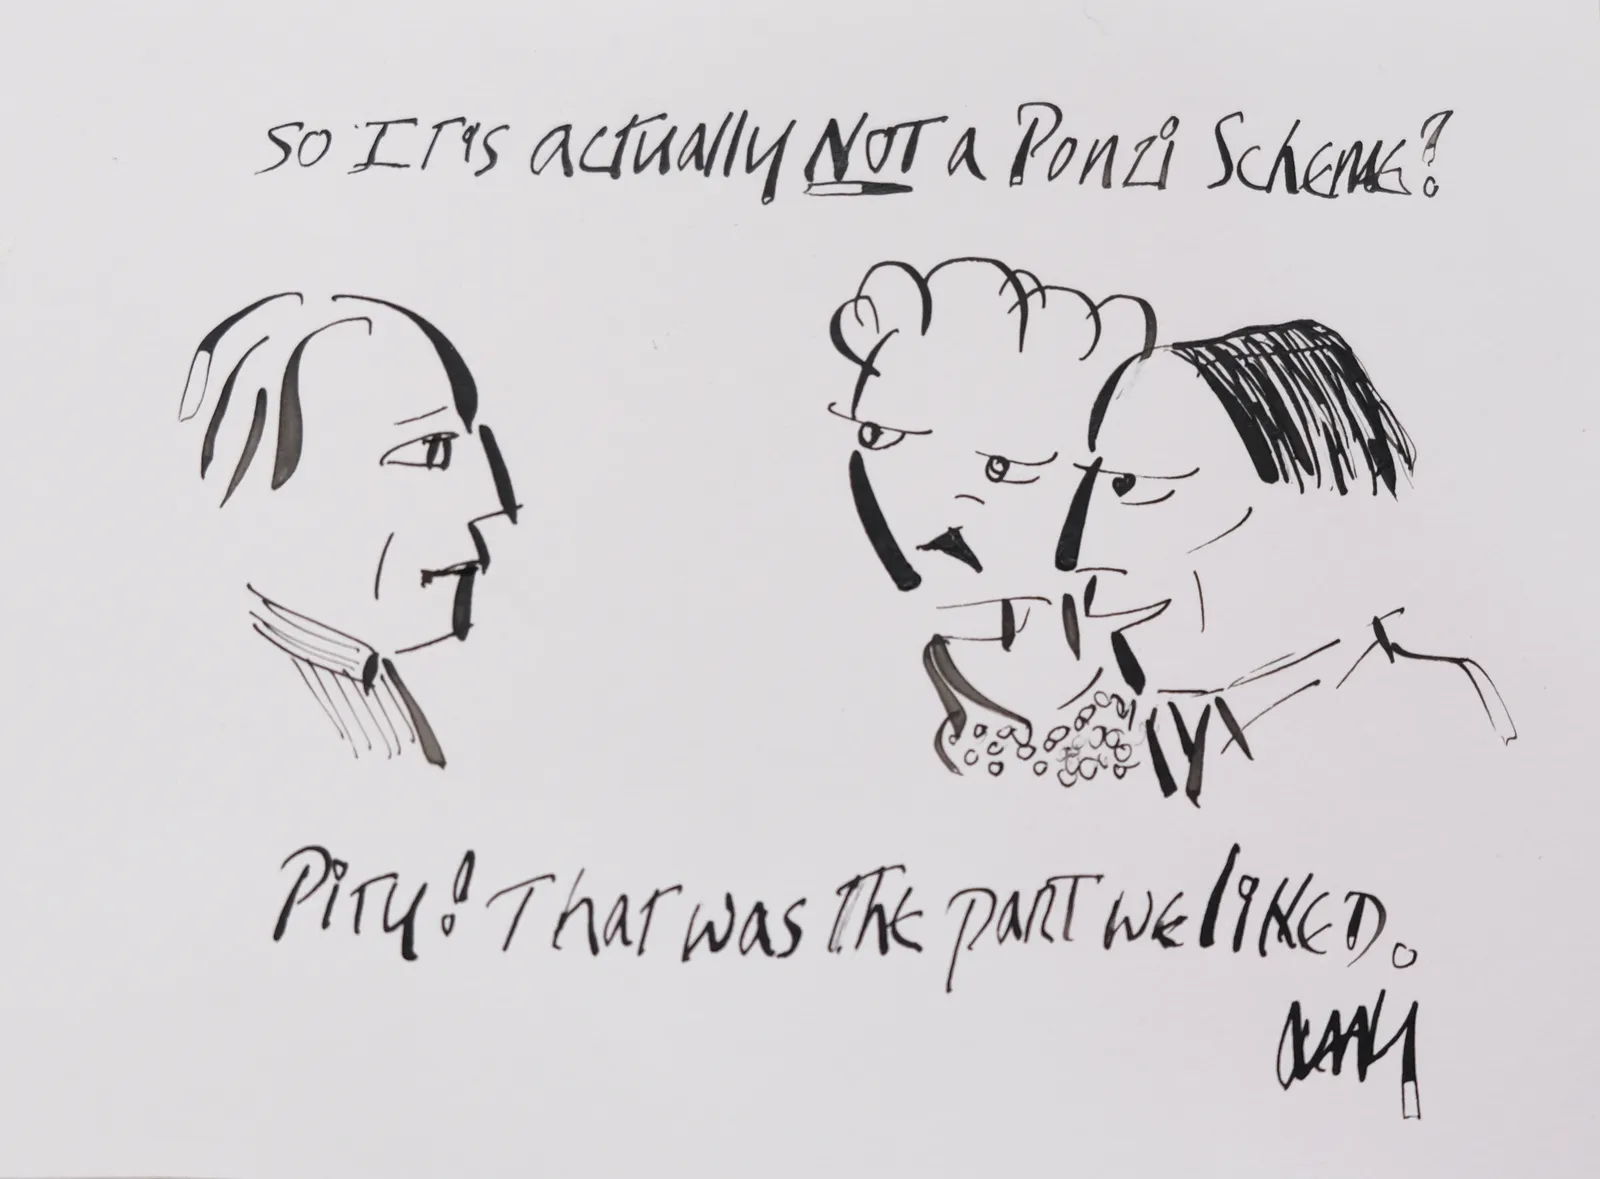 So It's actually NOT a Ponzi Scheme?
Pity! That was the part we liked.